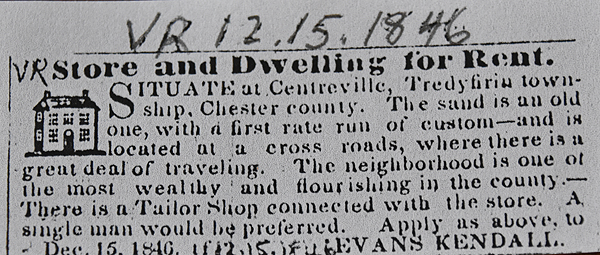 VR 12.15.1846
VR Store and Dwelling for Rent.
SITUATE at Centreville, Tredyffrin town-
ship, Chester county. The sand is an old
one, with a first rate run of custom—and is
located at a cross roads, where there is a
great deal of traveling. The neighborhood is one of
the most wealthy and flourishing in the county.—
There is a Tailor Shop connected with the store. A
single man would be preferred. Apply as above, to
Dec. 15, 1846. EVANS KENDALL.